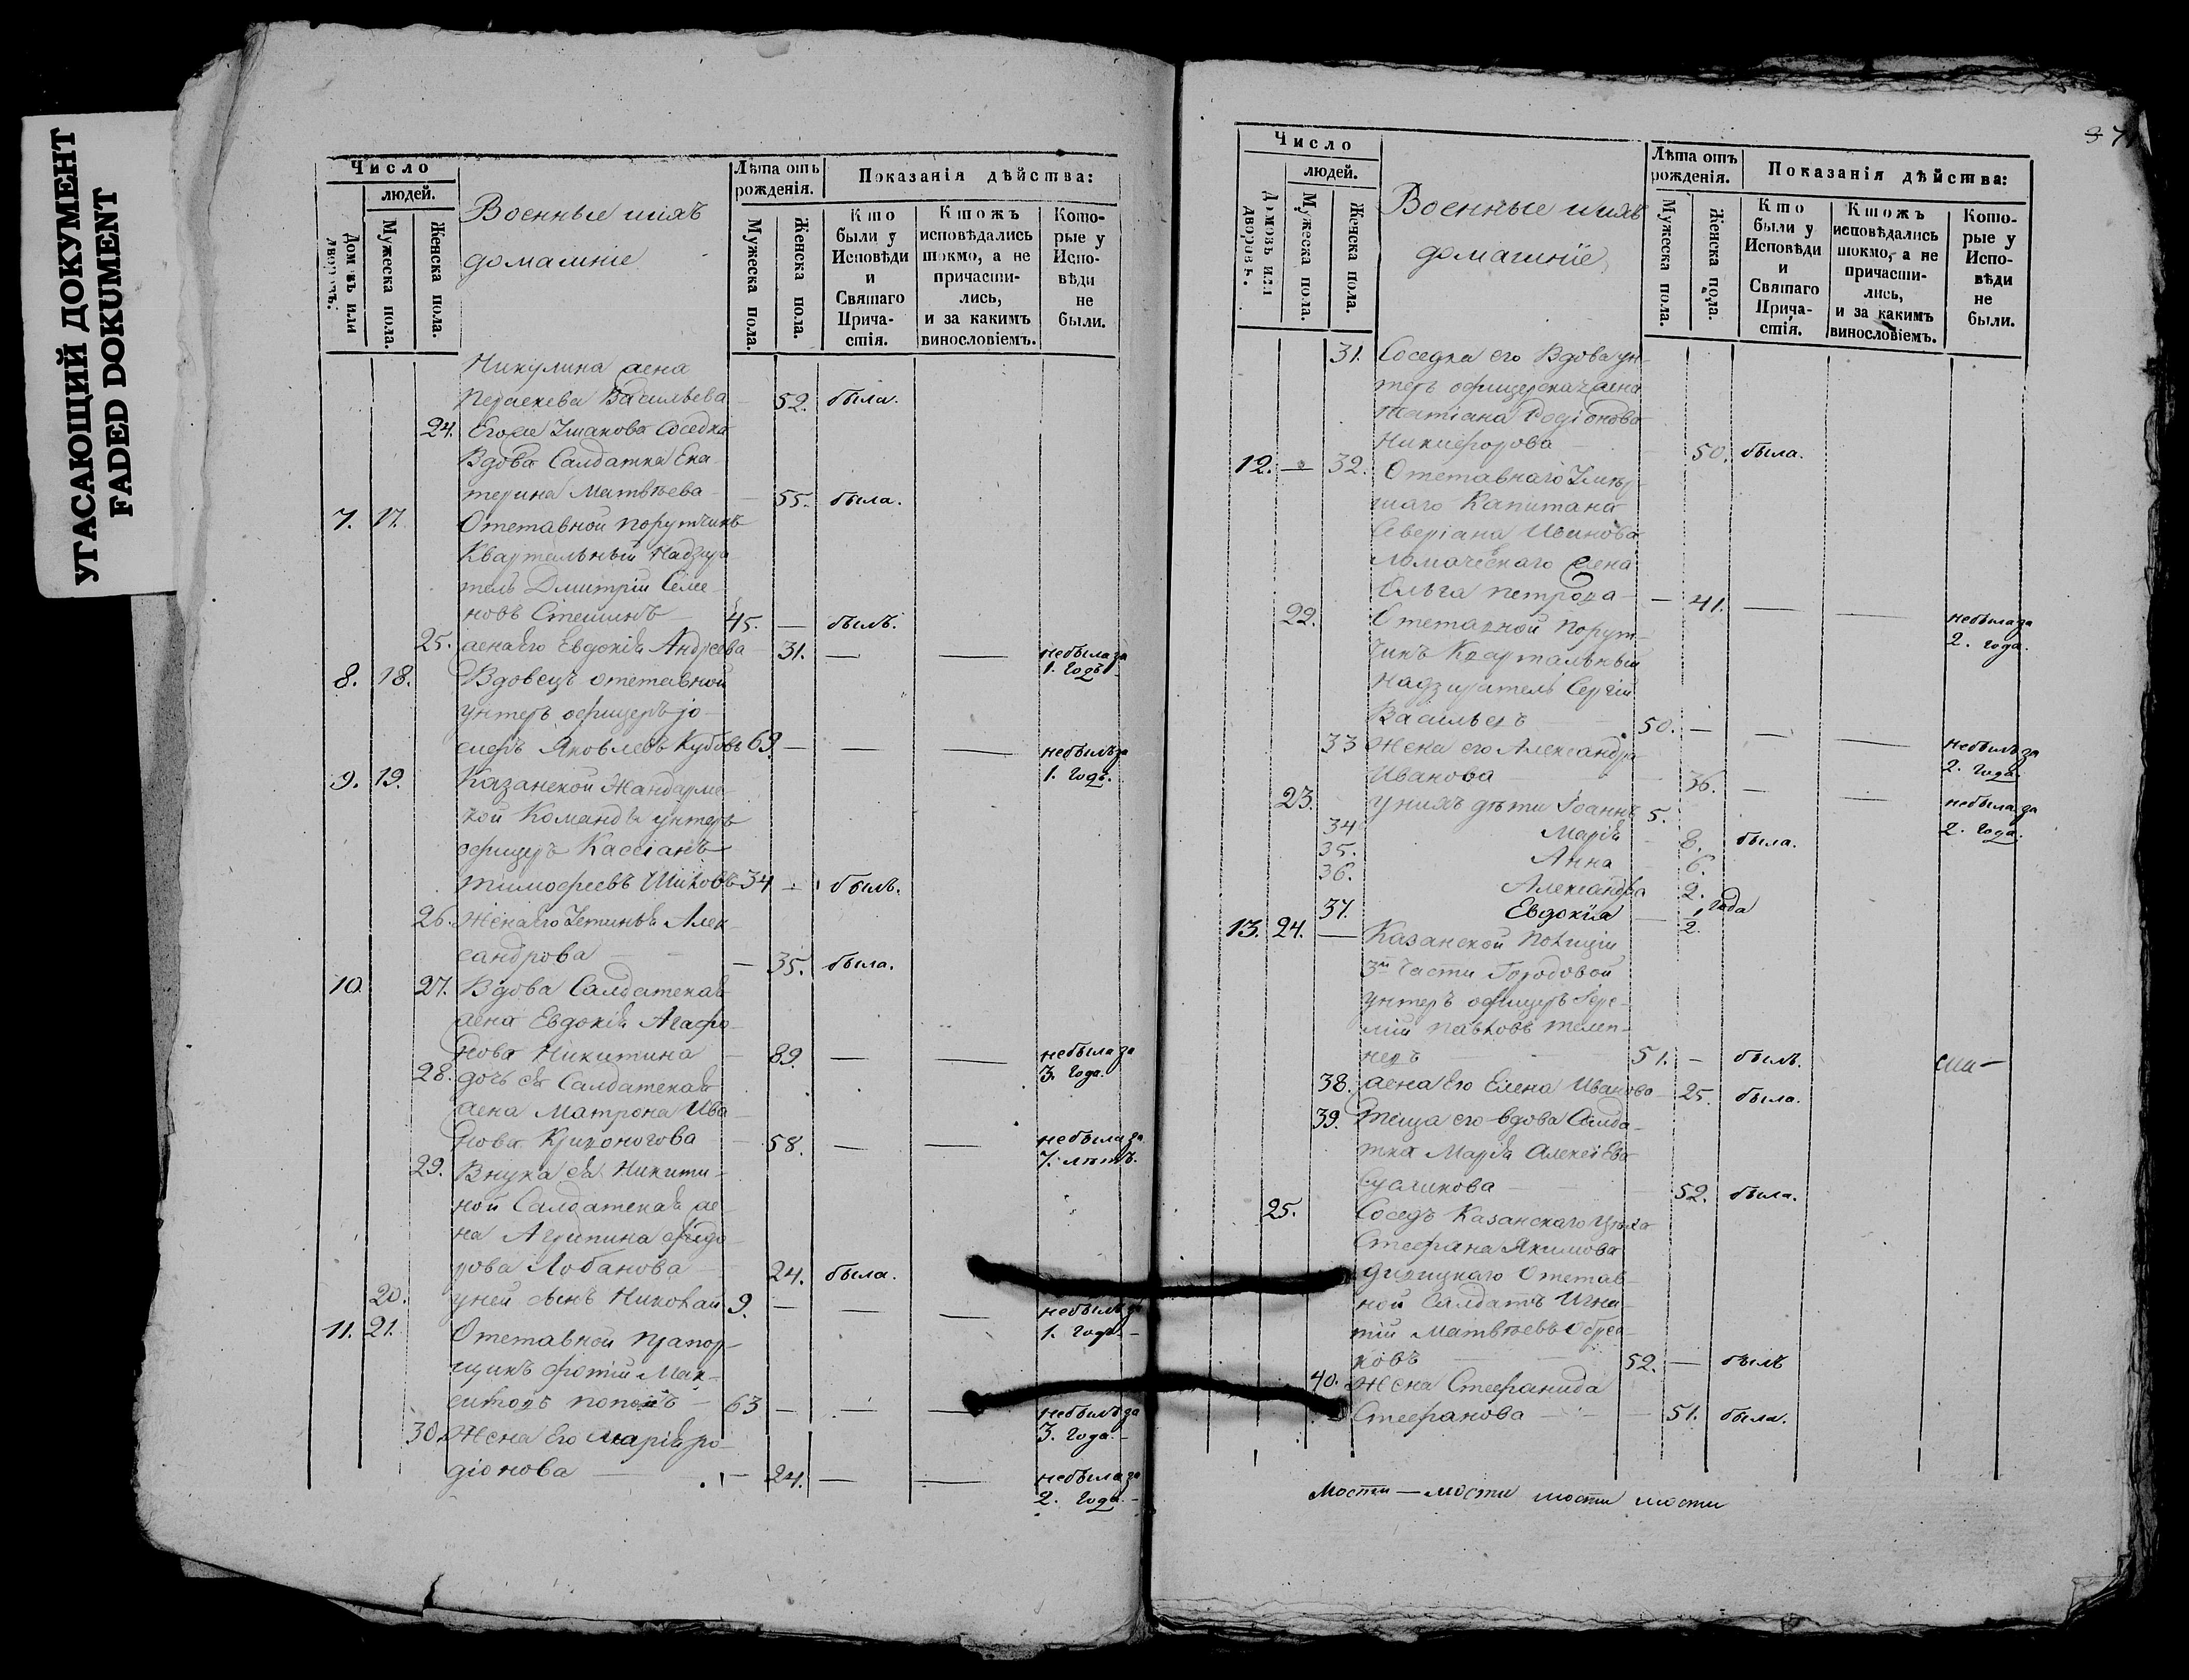 УГАСАЮЩИЙ ДОКУМЕНТ
FADED DOKUMENT
Число
людей.
Домовъ или дворовъ.
Мужеска пола.
Женска пола.
Военные ихъ
домашніе
Лѣта отъ рожденія.
Мужеска пола.
Женска пола.
Показанія дѣйства:
Кто были у Исповѣди и Святаго Прича-стія.
Ктожъ исповѣдались токмо, а не причасти-лись, и за какимъ винословіемъ.
Кото-рые у Испо-вѣди не были.
Никулина жена
Параскева Васильева 52. была.
24. Соседка
Вдова Салдатка Ека
терина Матвѣева 55. была.
7. 17. Отставной порутчикъ
Квартальный Надзира
тель Дмитрій Семе
новъ 45. — былъ.
25. жена Его Евдокія Андреева 31. — — небыла за
1. Годъ
8. 18. Вдовецъ отставной
унтеръ офицеръ Іо
сифъ Яковлевъ Кубовъ 69. — — — небылъ за
1. Годъ.
9. 19. Казанской Жандармс
кой Команды унтеръ
офицеръ Кассіанъ
Тимофеевъ 34 — былъ.
26. Жена Его Устинья Алек
сандрова — 35. была.
10. 27. Вдова Салдатская
жена Евдокія Агафо
нова Никитина — 89. — — небыла за
3. Года.
28. дочь ея Салдатская
жена Матрона Ива
нова Кривоногова — 58. — — небыла за
7. лѣтъ.
29. Внука ея Никити
ной Салдатская же
на Агрипина Федо
рова Лобанова 24. была.
20. у ней сынъ Николай 9. — — — небылъ за
1. Годъ. —
11. 21. Отставной Прапор
щикъ Фотій Мак
симовъ Поповъ — 63 — — — небылъ за
3. Года. —
30. Жена Его Марія Ро
діонова — — 24. — — небыла за
2. Года. —
37
Число
людей.
Домовъ или дворовъ.
Мужеска пола.
Женска пола.
Военные ихъ
домашніе
Лѣта отъ рожденія.
Мужеска пола.
Женска пола.
Показанія дѣйства:
Кто были у Исповѣди и Святаго Прича-стія.
Ктожъ исповѣдались токмо, а не причасти-лись, и за какимъ винословіемъ.
Кото-рые у Испо-вѣди не были.
31. Соседка его Вдова ун
теръ офицерская жена
Татіана Родіонова
Никифорова 50. была.
12. — 32. Отставнаго Умер
шаго Капитана
Аверіана Иванова
жена
Ольга Петрова — 41. — — небыла за
2. года.
22. Отставной Порут
чикъ Квартальный
надзиратель Сергій
Васильевъ 50. — — — небылъ за
2. Года.
33 Жена его Александра
Иванова 36. — — небыла за
2. Года.
23. у нихъ дѣти Іоаннъ 5.
34 Марія 8. была.
35. Анна 6.
36. Александра 2.
37. Евдокія — 1/2 года
13. 24. — Казанской Полиціи
3й части Городовой
унтеръ офицеръ Іере
мій Павловъ Телеп
невъ 51. — былъ.
38. жена Его Елена Иванова 25. была.
39. Теща его вдова Салда
тка Марія Алексіева
52. была.
25. Соседъ Казанскаго
Стефана Якимова
Отстав
ной Салдатъ Игна
тій Матвѣевъ
ковъ 52. — былъ
40. Жена Стефанида
Стефанова — — 51. была.
Мости — мости мости мости